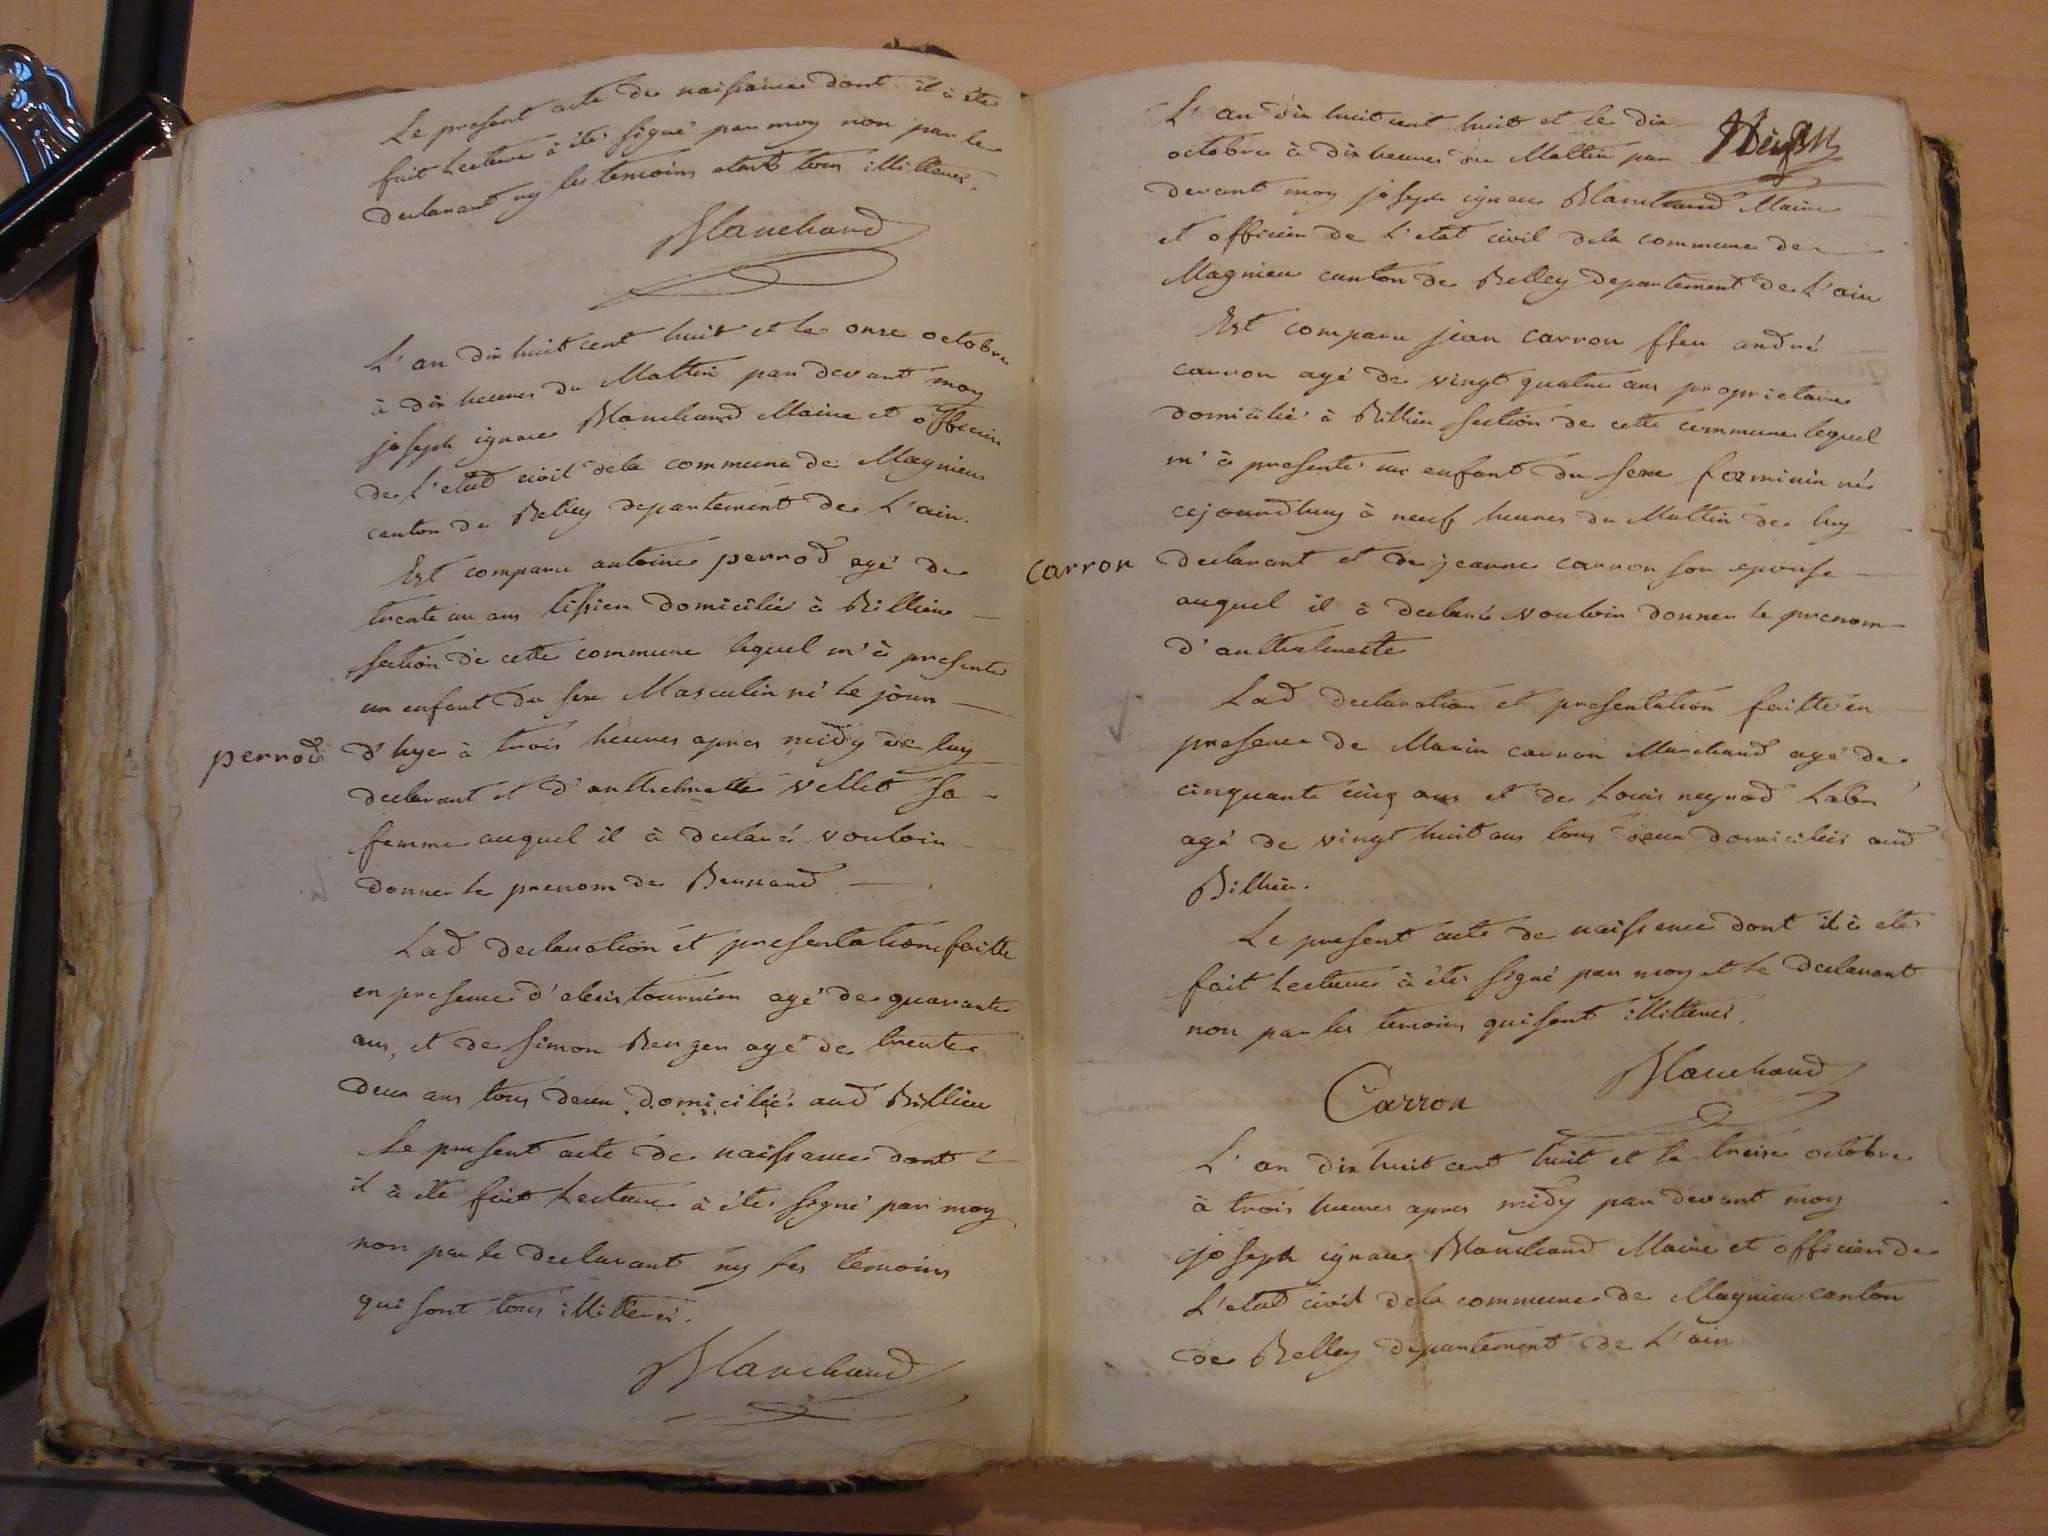 Le present acte de naissance dont il à été
fait Lecture à été signé par moy non par le
declarant ny les temoins etant tous illitteres.
Blanchand
L'an dix huit cent huit et le onze octobre
à dix heures du Mattin par devant moy
joseph ignace Blanchand Maire et officier
de L'etat civil dela commune de Magnieu
canton de Belley departement de L'ain.
Est comparu antoine perrod agé de
trente un ans tissier domicilié à Billieu
section de cette commune lequel m'à presenté
un enfant du sexe Masculin né le jour
perrod
d'hyer à trois heures apres midy de luy
declarant et d'anthelmette Vellet sa
femme auquel il à declaré vouloir
donner le prenom de Bernard
Lad declaration et presentation faitte
en presence d'alexis tournier agé de quarante
ans, et de simon Berger agé de trente
deux ans tous deux domiciliés aud Billieu
Le present acte de naissance dont
il à été fait Lecture à été signé par moy
non par le declarant ny les temoins
qui sont tous illitteres.
Blanchand
L'an dix huit cent huit et le dix
octobre à dix heures du Mattin par
devant moy joseph ignace Blanchand Maire
et officier de L'etat civil dela commune de
Magnieu canton de Belley departement de L'ain
Est comparu jean carron ffeu andré
carron agé de vingt quatre ans proprietaire
domicilié à Billieu section de cette commune lequel
m'à presenté un enfant du sexe feminin né
cejourdhuy à neuf heures du Mattin de luy
carron
declarant et de jeanne carron son epouse
auquel il à declaré vouloir donner le prenom
d'anthelmette
Lad declaration et presentation faitte en
presence de Marin carron Marchand agé de
cinquante cinq ans et de Louis neyrod Labr
agé de vingt huit ans tous deux domiciliés aud
Billieu.
Le present acte de naissence dont il à été
fait Lecture à été signé par moy et le declarant
non par les temoins qui sont illitteres.
Blanchand
Carron
L'an dix huit cent huit et le treize octobre
à trois heures apres midy par devant moy
joseph ignace Blanchand Maire et officier de
L'etat civil dela commune de Magnieu canton
de Belley departement de L'ain